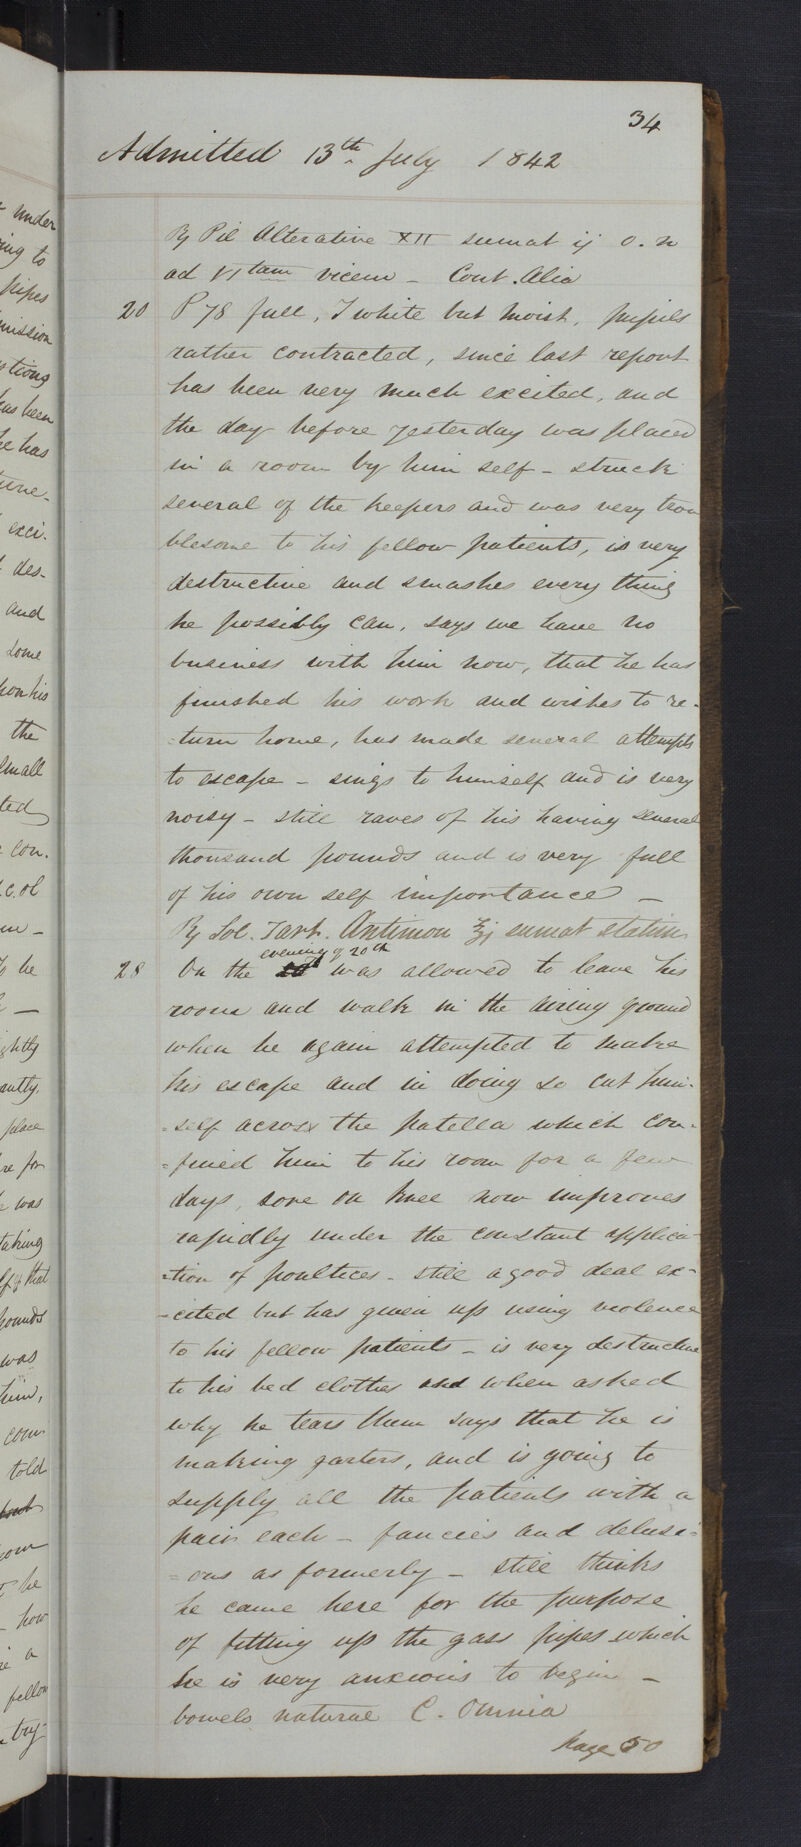 34
Admitted 13th July 1842
℞ Pil Alterative XII sumat ij o. n
ad VI tam vicem - Cont. Alia
20 P 78 full, T white but moist, pupils
rather contracted, since last report
has been very much excited, and
the day before yesterday was placed
in a room by him self - struck
several of the keepers and was very trou
blesome to his fellow patients, is very
destructive and smashes every thing
he possibly can, says we have no
business with him now, that he has
finished his work and wishes to re-
=turn home, has made several attempts
to escape - sings to himself and is very
noisy - still raves of his having several
thousand pounds and is very full
of his own self importance -
℞ Sol. Tart. Antimon ℥j sumat statim
evening of 20th
28 On the was allowed to leave his
room and walk in the airing ground
when he again attempted to make
his escape and in doing so cut him-
=self across the patella which con-
=fined him to his room for a few
days, sore on knee now improves
rapidly under the constant applica-
=tion of poultices - still a good deal ex-
-cited but has given up using violence
to his fellow patients - is very destructive
to his bed clothes and when asked
why he tears them says that he is
making garters, and is going to
supply all the patients with a
pair each - fancies and delusi=
=ons as formerly - still thinks
he came here for the purpose
of fitting up the gass pipes which
he is very anxious to begin -
bowels natural C. Omnia
page 50
under
ing to
pipes
mission
tions
has been
he has
exci.
des-
and
some
on his
the
small
ted
con.
he
ghtly
antly.
place
re for
was
taking
that
pounds
was
him,
com
told
he
how
a
fellow
try-